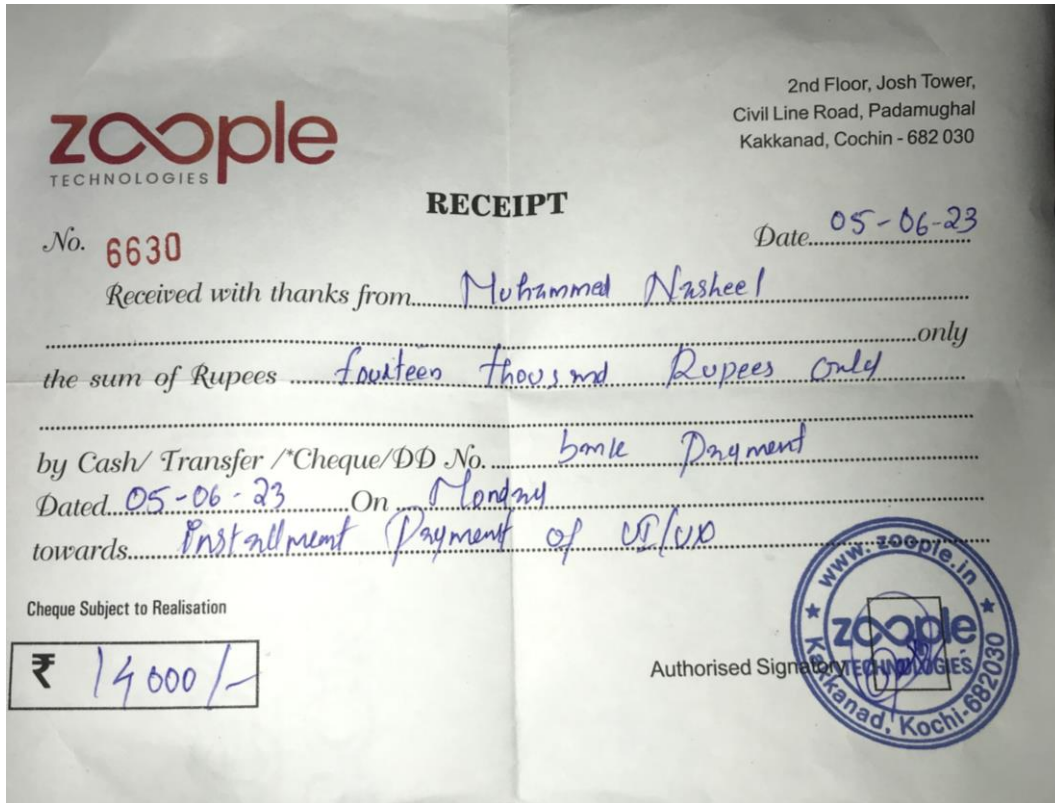 zoople
TECHNOLOGIES
2nd Floor, Josh Tower,
Civil Line Road, Padamughal
Kakkanad, Cochin - 682 030
RECEIPT
No. 6630
Date 05-06-23
Received with thanks from Muhammed Nasheel
only
the sum of Rupees fourteen thousand Rupees only
by Cash/ Transfer /*Cheque/DD No. bank Payment
Dated 05-06-23 On Monday
towards Installment Payment of UI/UX
Cheque Subject to Realisation
₹ 14000/-
Authorised Signatory
www.zoople.in
zoople
TECHNOLOGIES
Kakkanad, Kochi-682030